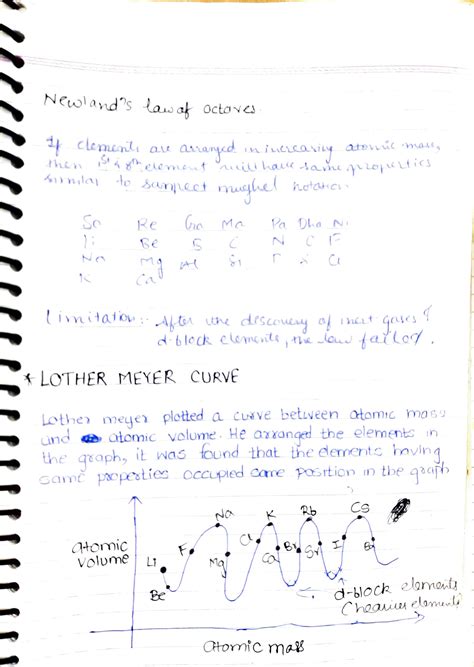 Newland's law of octaves
If elements are arranged in increasing atomic mass,
then 1st & 8th element will have same properties
similar to
Sa Re Ga Ma Pa Dha Ni
Li Be B C N O F
Na Mg Al Si P S Cl
K Ca
Limitation:- After the discovery of inert gases &
d-block elements, the law failed.
* LOTHER MEYER CURVE
Lother meyer plotted a curve between atomic mass
and atomic volume. He arranged the elements in
the graph, it was found that the elements having
same properties occupied same position in the graph
Na K Rb Cs
atomic volume
Li F Cl Br I
Be Mg Ca Sr Ba
d-block elements
(heavier elements)
atomic mass